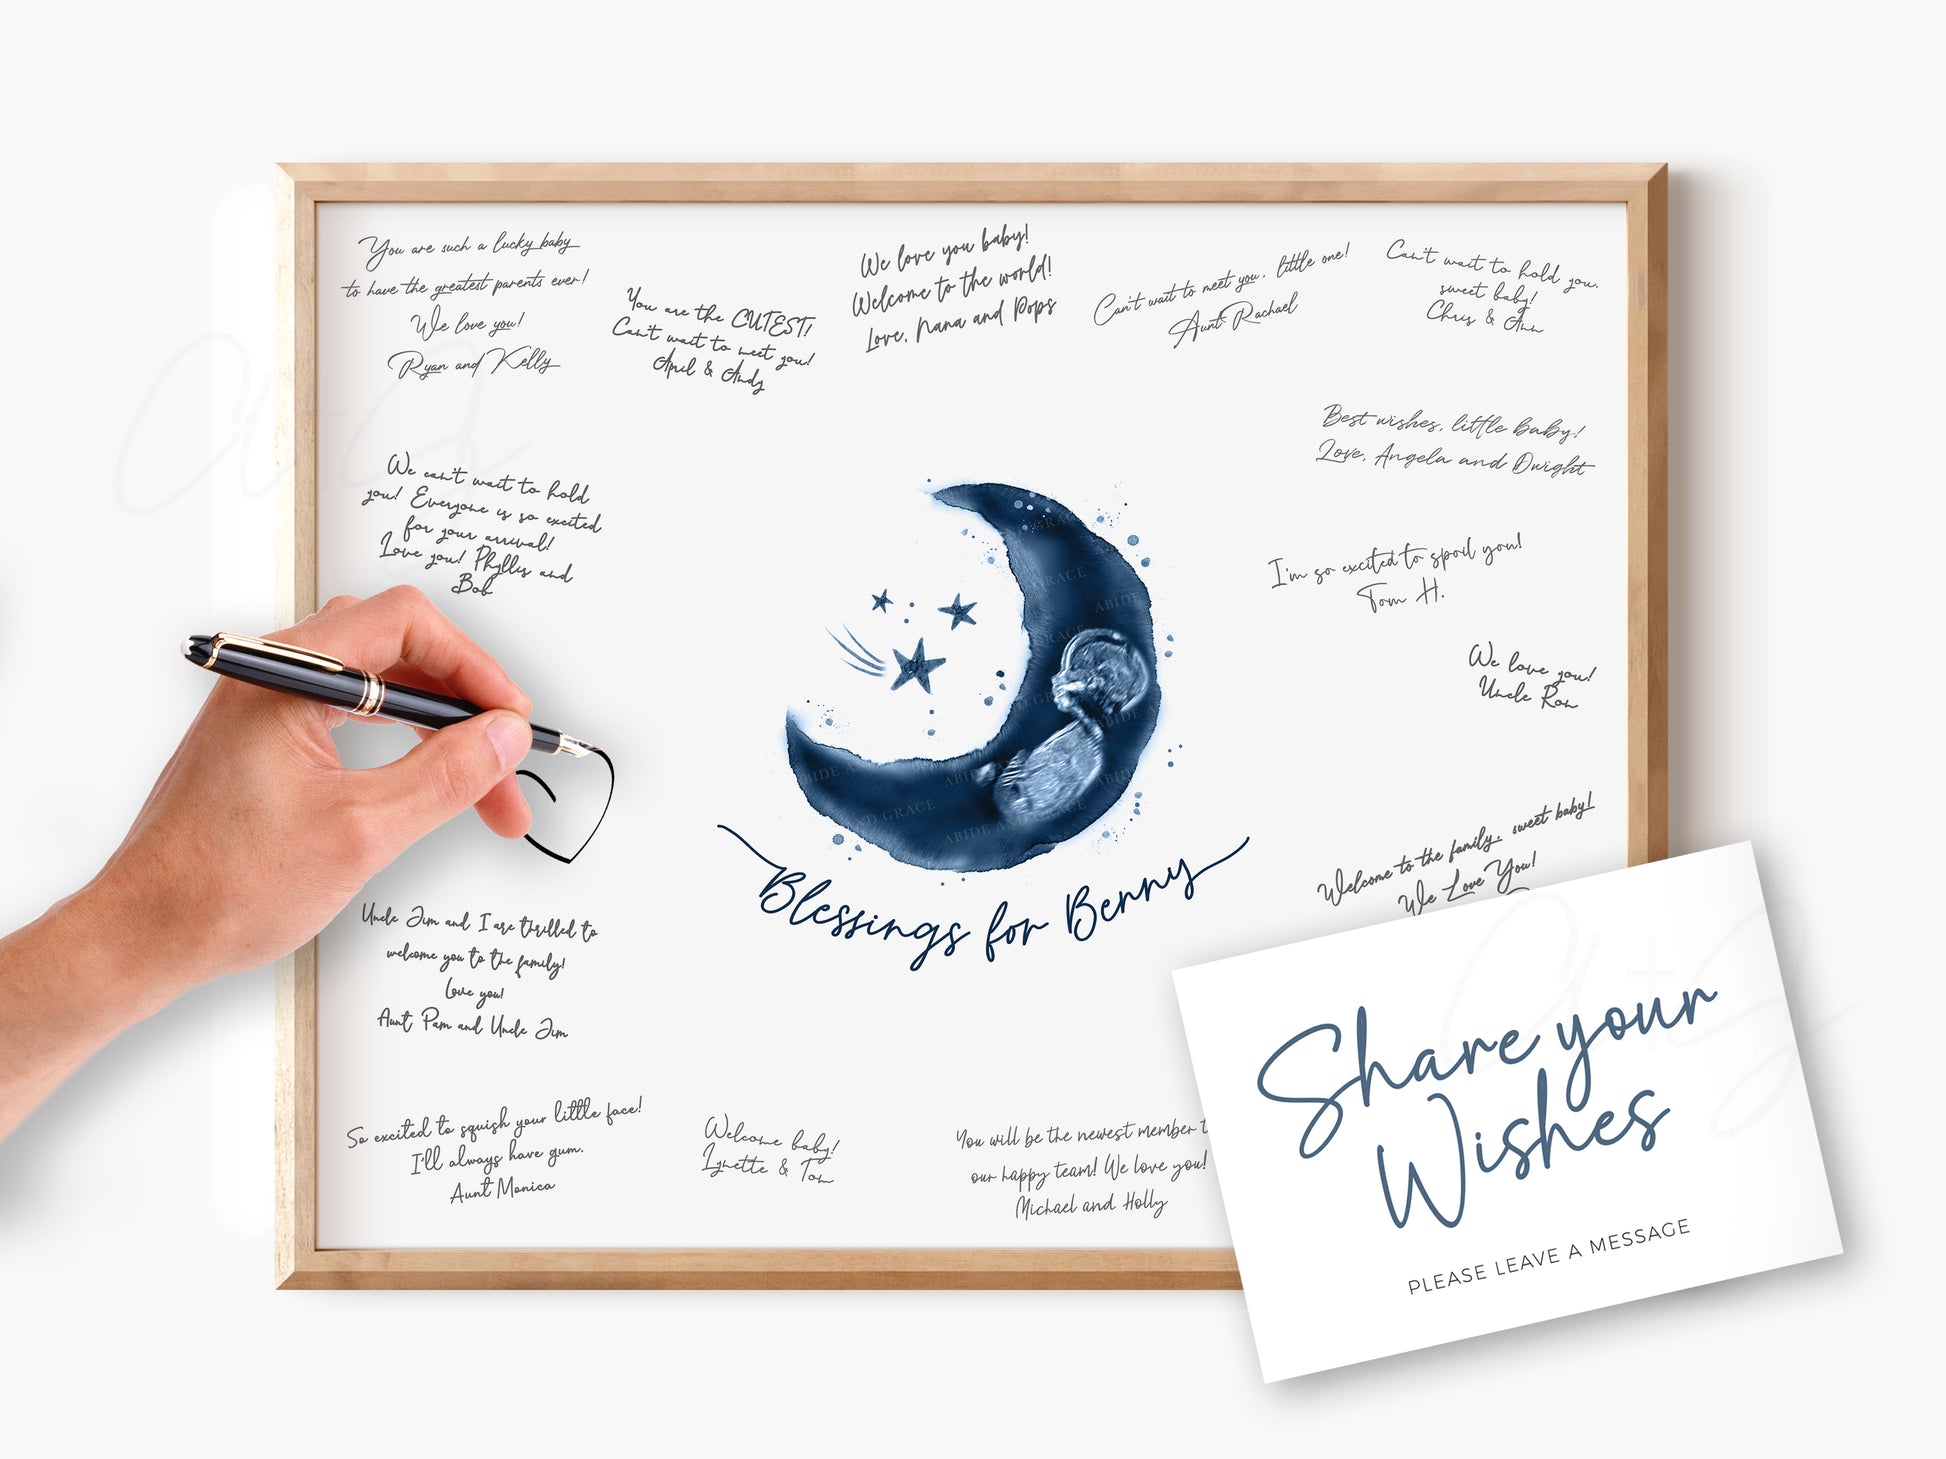 You are such a lucky baby
to have the greatest parents ever!
We love you!
Ryan and Kelly
You are the CUTEST!
Can't wait to meet you!
April & Andy
We love you baby!
Welcome to the world!
Love, Nana and Pops
Can't wait to meet you, little one!
Aunt Rachael
Can't wait to hold you,
sweet baby!
Chris & Ann
Best wishes, little baby!
Love, Angela and Dwight
We can't wait to hold
you! Everyone is so excited
for your arrival!
Love you! Phyllis and
Bob
I'm so excited to spoil you!
Tom H.
We love you!
Uncle Ron
ABIDE AND GRACE
Blessings for Benny
Welcome to the family, sweet baby!
We Love You!
Uncle Jim and I are thrilled to
welcome you to the family!
Love you!
Aunt Pam and Uncle Jim
So excited to squish your little face!
I'll always have gum.
Aunt Monica
Welcome baby!
Lynette & Tom
You will be the newest member t
our happy team! We love you!
Michael and Holly
Share your
Wishes
PLEASE LEAVE A MESSAGE